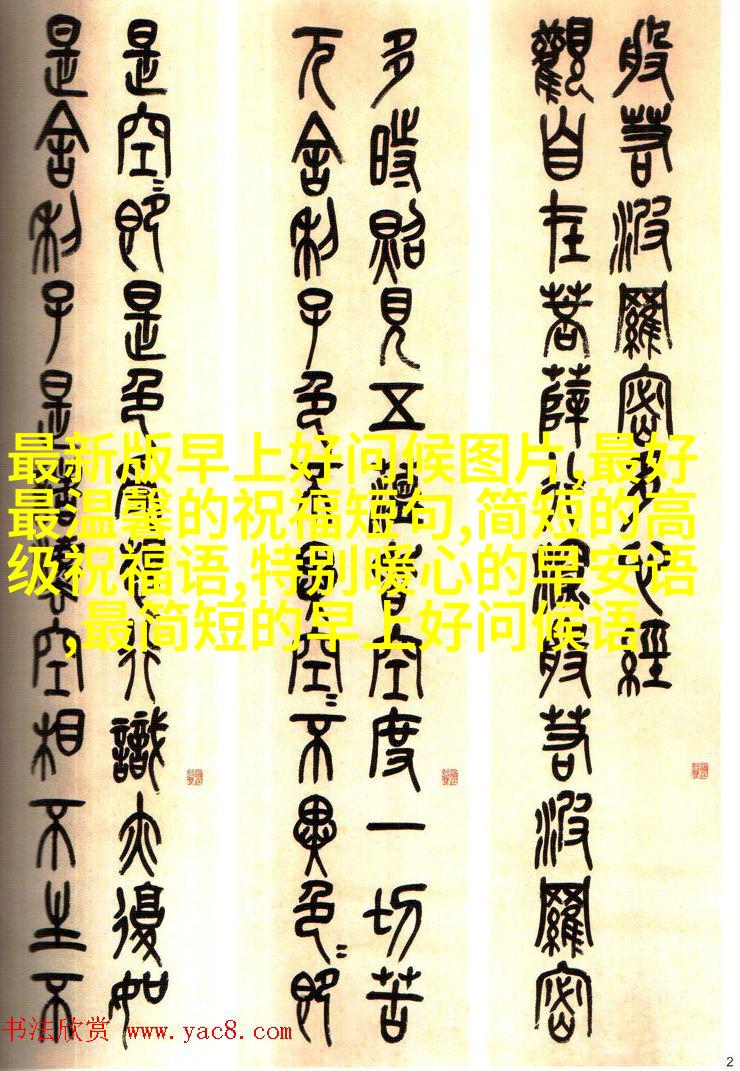 般若波羅密多心經
觀自在菩薩行深般若波羅密
多時照見五蘊皆空度一切苦
厄舍利子色不異空〻不異色〻即
是空〻即是色受想行識亦復如
是舍利子是諸法空相不生不
最新版早上好问候图片,最好
最温馨的祝福短句,简短的高
级祝福语,特别暖心的早安语
,最简短的早上好问候语
书法欣赏 www.yac8.com
2